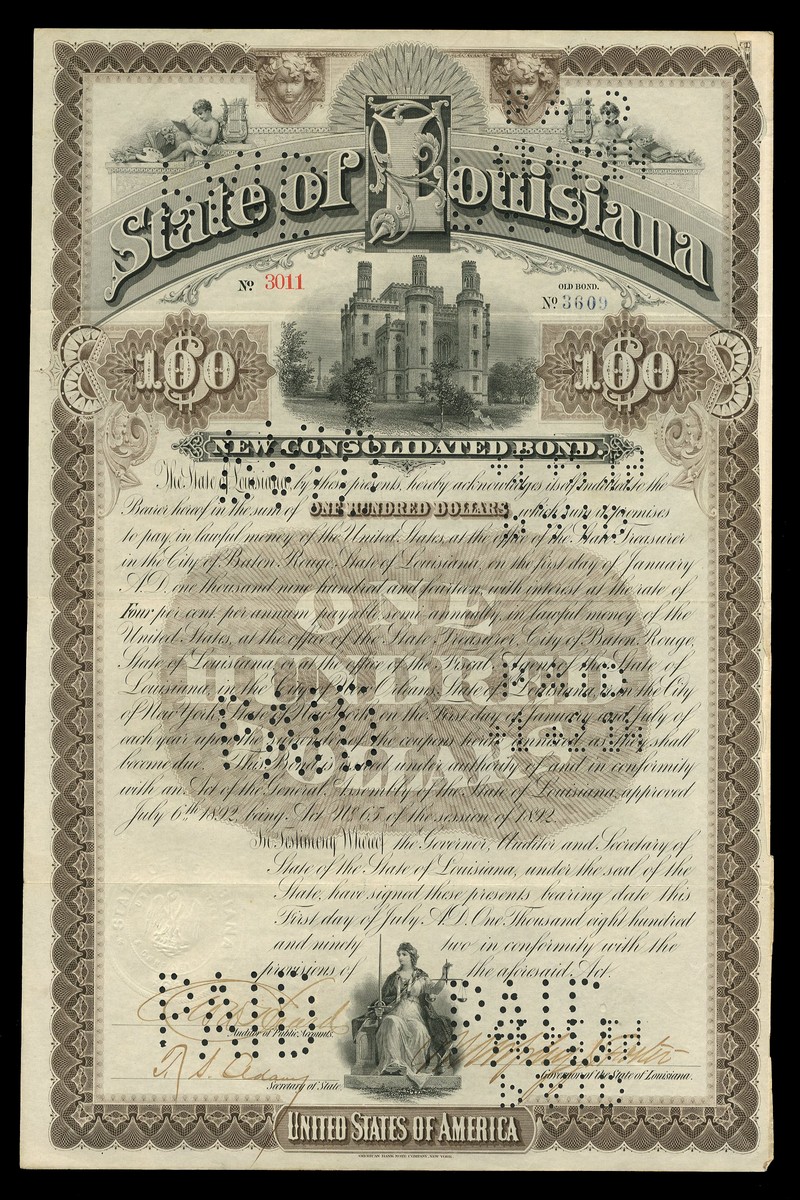 State of Louisiana
No 3011
OLD BOND.
No 3609
100
100
NEW CONSOLIDATED BOND.
The State of Louisiana, by these presents, hereby acknowledges itself indebted to the
Bearer hereof in the sum of ONE HUNDRED DOLLARS, which sum it promises
to pay, in lawful money of the United States, at the office of the State Treasurer
in the City of Baton Rouge, State of Louisiana, on the first day of January
A.D. one thousand nine hundred and fourteen, with interest at the rate of
Four per cent. per annum, payable semi annually, in lawful money of the
United States, at the office of the State Treasurer, City of Baton Rouge,
State of Louisiana, or at the office of the Fiscal Agency of the State of
Louisiana, in the City of New Orleans, State of Louisiana, or in the City
of New York, State of New York on the first day of January and July of
each year upon the surrender of the coupons hereto annexed as they shall
become due. This Bond is issued under authority of and in conformity
with an Act of the General Assembly of the State of Louisiana, approved
July 6th 1892, being Act No 65 of the session of 1892.
ONE
HUNDRED
DOLLARS
In Testimony Whereof the Governor, Auditor and Secretary of
State of the State of Louisiana, under the seal of the
State, have signed these presents bearing date this
First day of July A.D. One Thousand eight hundred
and ninety two in conformity with the
provisions of the aforesaid Act.
PAID
PAID
Auditor of Public Accounts.
Secretary of State.
Governor of the State of Louisiana.
UNITED STATES OF AMERICA
AMERICAN BANK NOTE COMPANY, NEW YORK.